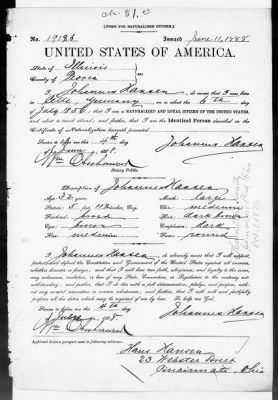 [FORM FOR NATURALIZED CITIZEN.]
No. 19186 Issued June 11, 1888
UNITED STATES OF AMERICA.
State of Illinois
County of Peoria } ss:
I, Johannes Hansen, do swear that I was born
in Germany, on or about the 6th day
of July 1856; that I am a NATURALIZED AND LOYAL CITIZEN OF THE UNITED STATES,
and about to travel abroad; and further, that I am the Identical Person described in the
Certificate of Naturalization herewith presented.
Sworn to before me this 4th day
of June 1888 Johannes Hansen
Notary Public.
Description of Johannes Hansen
Age: 32 years Mouth: large
Stature: Chin: medium
Forehead: broad Hair: dark brown
Eyes: Complexion: dark
Nose: medium Face: round
I, Johannes Hansen, do solemnly swear that I will support,
protect and defend the Constitution and Government of the United States against all enemies,
whether domestic or foreign; and that I will bear true faith, allegiance, and loyalty to the same,
any ordinance, resolution, or law of any State, Convention, or Legislature to the contrary not-
withstanding; and further, that I do this with a full determination, pledge, and purpose, with-
out any mental reservation or evasion whatsoever; and further, that I will well and faithfully
perform all the duties which may be required of me by law. So help me God.
Sworn to before me this 4th
day of June 1888 Johannes Hansen
Applicant desires passport sent to following address:
Hans Hansen
23 Webster Street
Cincinnati, Ohio